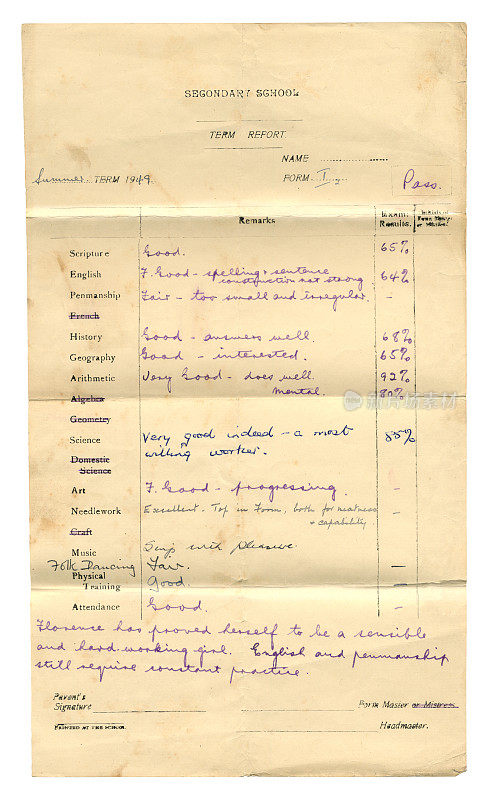 SECONDARY SCHOOL
TERM REPORT
NAME
Summer TERM 1949. FORM I
Pass.
Remarks Exam: Results. Initials of Form Master or Mistress.
Scripture Good. 65%
English F. Good - spelling & sentence construction not strong 64%
Penmanship Fair - too small and irregular. -
French
History Good - answers well. 68%
Geography Good - interested. 65%
Arithmetic Very Good - does well. 92%
Algebra mental. 80%
Geometry
Science Very good indeed - a most willing worker. 85%
Domestic Science
Art F. Good - progressing. -
Needlework Excellent - Top in Form, both for neatness & capability -
Craft
Music Sings with pleasure.
Folk Dancing Fair. -
Physical Training Good. -
Attendance Good. -
Florence has proved herself to be a sensible
and hard-working girl. English and penmanship
still require constant practice.
Parent's Signature Form Master or Mistress.
PRINTED AT THE SCHOOL. Headmaster.